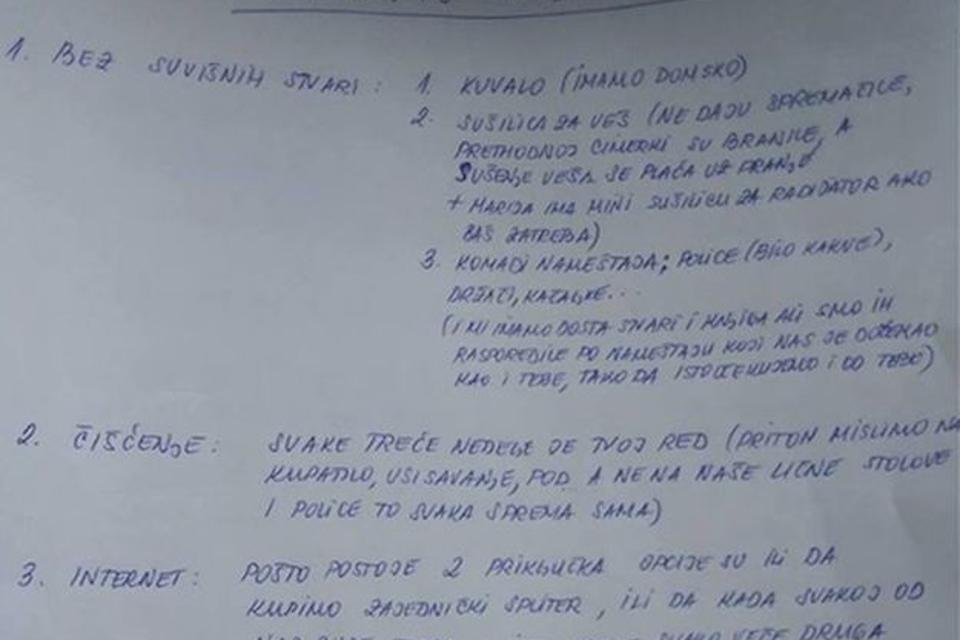 1. BEZ SUVIŠNIH STVARI: 1. KUVALO (IMAMO DOMSKO)
2. SUŠILICA ZA VEŠ (NE DAJU SPREMAČICE,
PRETHODNOJ CIMERKI SU BRANILE, A
SUŠENJE VEŠA SE PLAĆA UZ PRANJE
+ MARIJA IMA MINI SUŠILICU ZA RADIJATOR AKO
BAŠ ZATREBA)
3. KOMADI NAMEŠTAJA; POLICE (BILO KAKVE),
DRŽAČI, KAČALJKE...
(I MI IMAMO DOSTA STVARI I KNJIGA ALI SMO IH
RASPOREDILE PO NAMEŠTAJU KOJI NAS JE DOČEKAO
KAO I TEBE, TAKO DA ISTO OČEKUJEMO I OD TEBE)
2. ČIŠĆENJE: SVAKE TREĆE NEDELJE JE TVOJ RED (PRITOM MISLIMO NA
KUPATILO, USISAVANJE, POD A NE NA NAŠE LIČNE STOLOVE
I POLICE TO SVAKA SPREMA SAMA)
3. INTERNET: POŠTO POSTOJE 2 PRIKLJUČKA OPCIJE SU ILI DA
KUPIMO ZAJEDNIČKI SPLITER, ILI DA KADA SVAKOJ OD
DRUGA